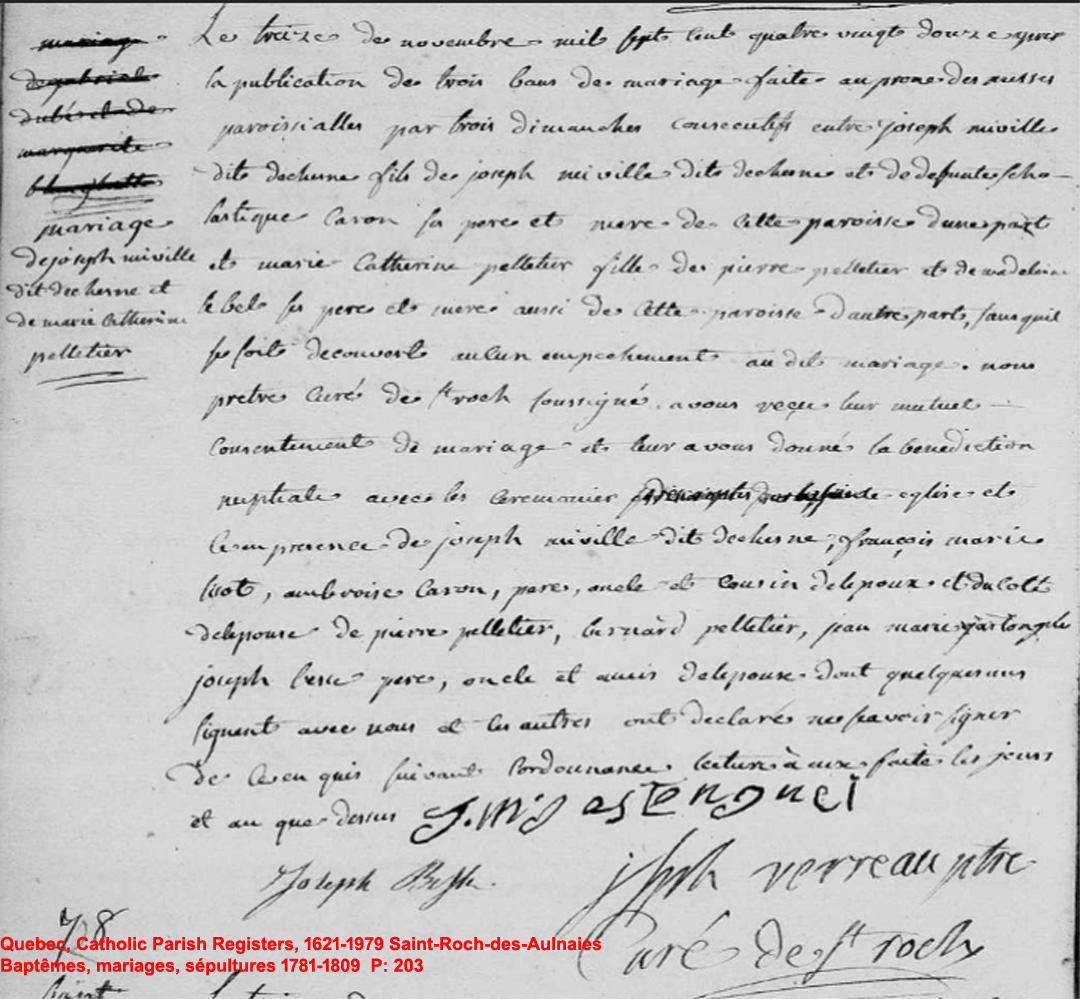 mariage
de gabriel
dubé et de
marguerite
mariage
de joseph miville
dit dechesne et
de marie Catherine
pelletier
Le treize de novembre mil sept cent quatre vingt douze apres
la publication de trois bans de mariage faite au prone des messes
paroissialles par trois dimanches consecutifs entre joseph miville
dit dechesne fils de joseph miville dit dechesne et de defunte scho-
lastique Caron ses pere et mere de cette paroisse dune part
et marie Catherine pelletier fille de pierre pelletier et de madeleine
lebel ses pere et mere aussi de cette paroisse dautre part, sans quil
se soit decouvert aucun empechement au dit mariage. nous
pretre Curé de st roch soussigné avons reçu leur mutuel
Consentement de mariage et leur avons donné la benediction
nuptiale avec les ceremonies eglise et
ce en presence de joseph miville dit dechesne, françois marie
ambroise Caron, pere, oncle et cousin de lepoux et du coté
de lepouse de pierre pelletier, bernard pelletier, jean marie
joseph pere, oncle et amis de lepouse dont quelquesuns
signent avec nous et les autres ont declaré ne scavoir signer
de ce enquis suivant lordonnance lecture à eux faite les jours
et an que dessus
Joseph
jsph verreau ptre
Curé de st roch
Quebec, Catholic Parish Registers, 1621-1979 Saint-Roch-des-Aulnaies
Baptêmes, mariages, sépultures 1781-1809 P: 203